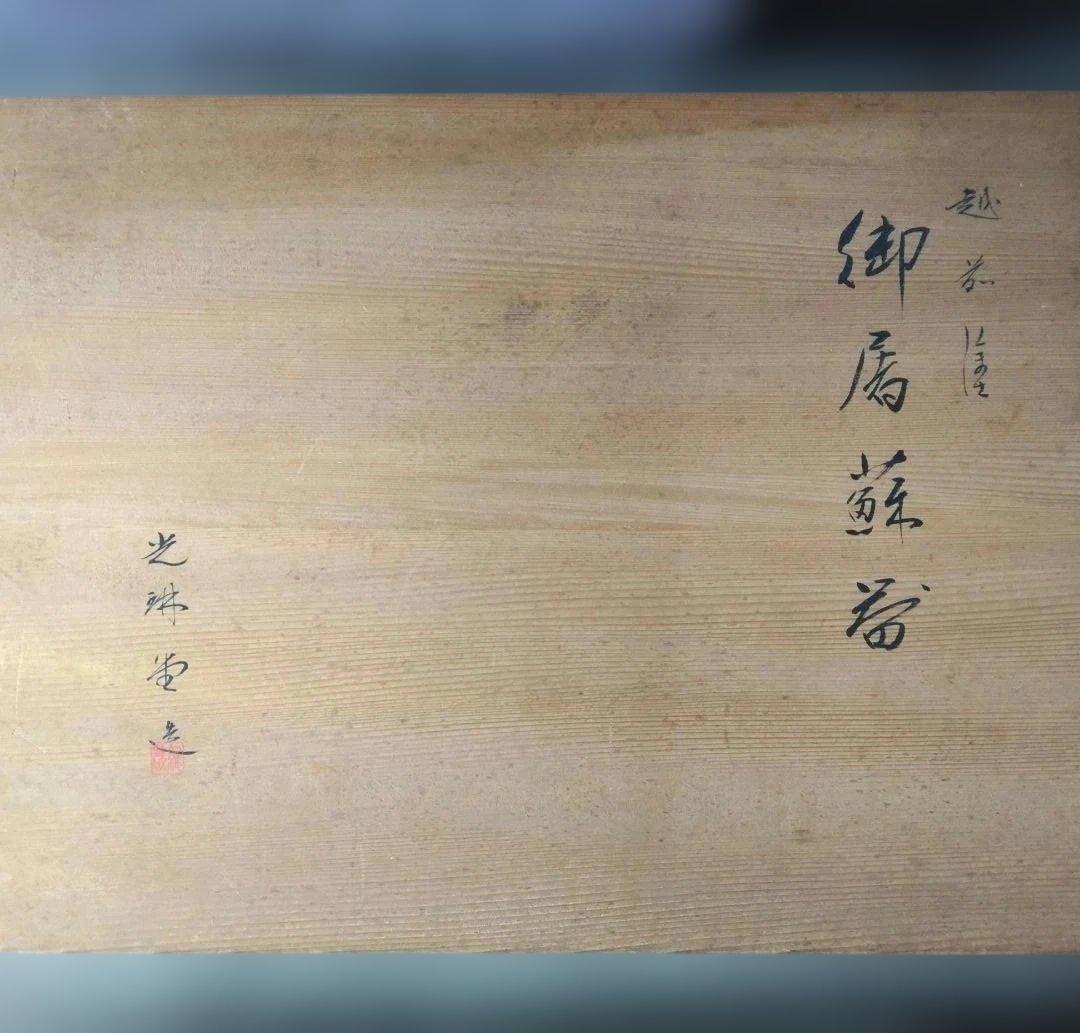 越前塗
御屠蘇器
光琳堂造